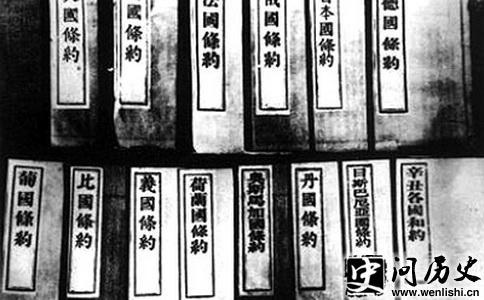 國條約
國條約
法國條約
俄國條約
日本國條約
德國條約
葡國條約
比國條約
義國條約
荷蘭國條約
奧斯馬加國條約
丹國條約
日斯巴尼亞國條約
辛丑各國和約
问历史
www.wenlishi.cn